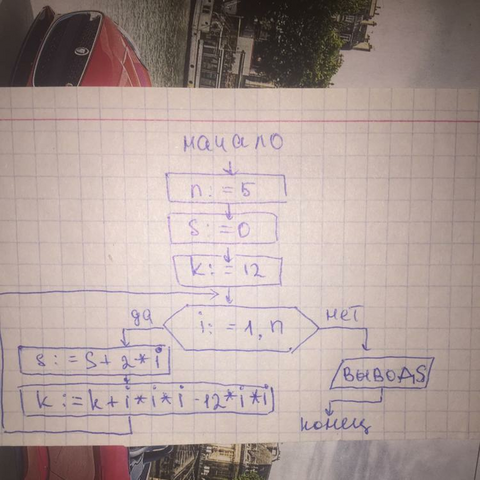 начало
n:=5
S:=0
k:=12
i:=1,n
да
нет
s:=S+2*i
k:=k+i*i*i-12*i*i
вывод S
конец